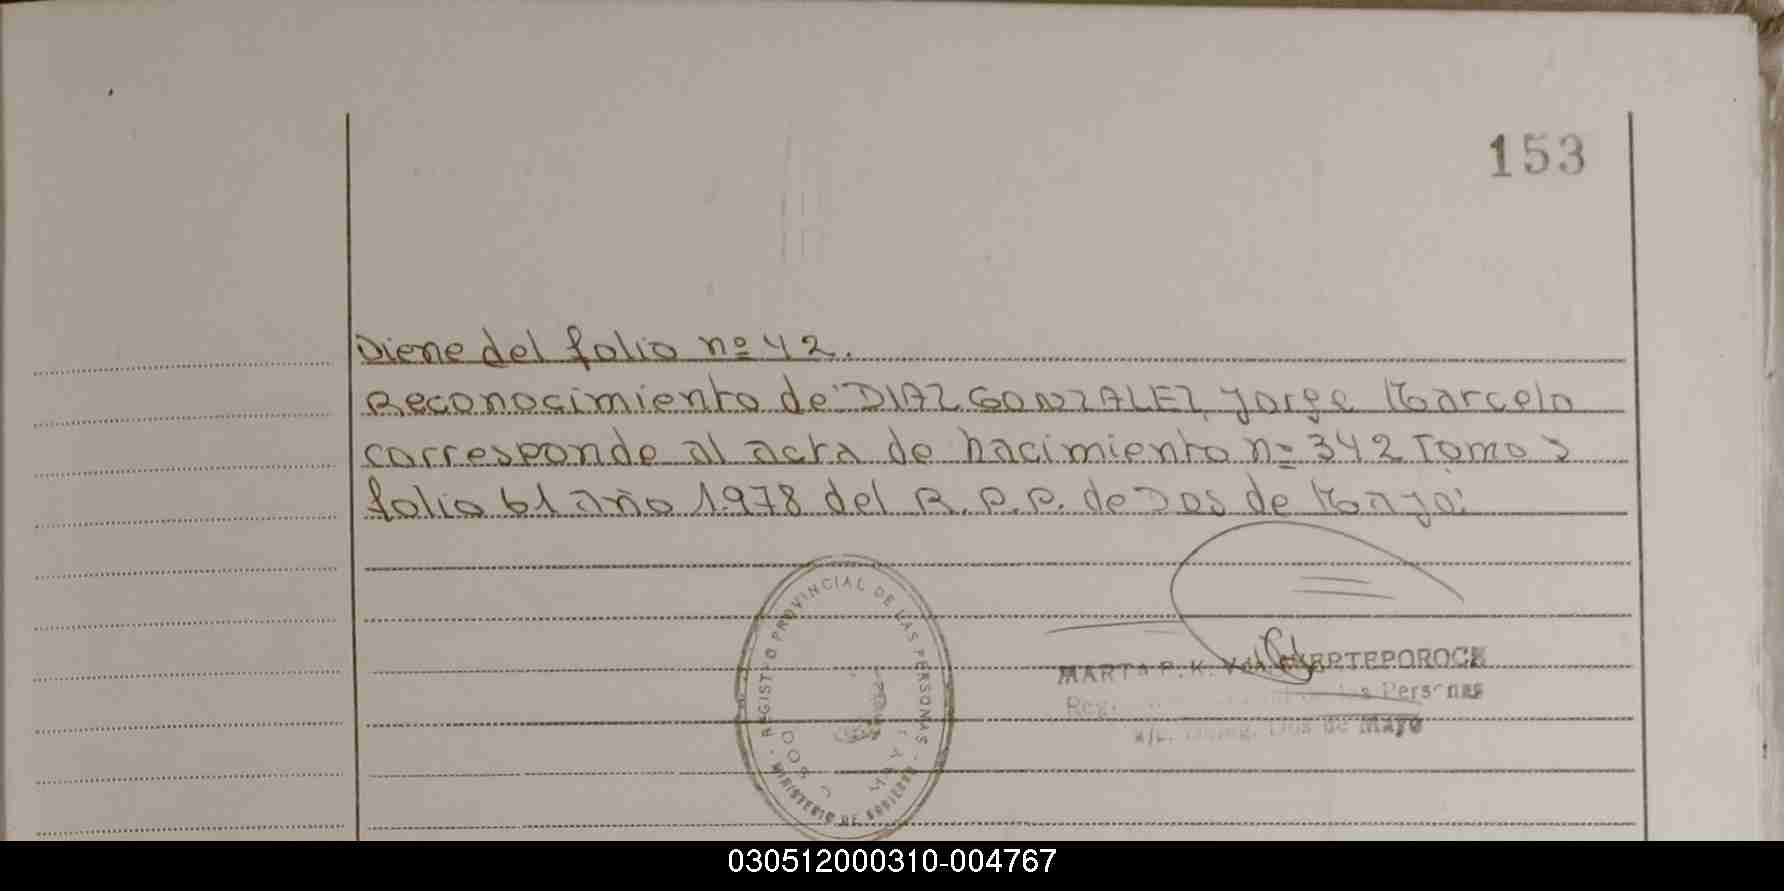 153
Viene del folio nº 42.
Reconocimiento de: DIAZ GONZALEZ, Jorge Marcelo
corresponde al acta de nacimiento nº 342 Tomo
folio 61 año 1978 del R.P.P. de Dos de Mayo.
REGISTRO PROVINCIAL DE LAS PERSONAS - MINISTERIO DE GOBIERNO
MARTA P. K.
Personas
Dos de Mayo
030512000310-004767